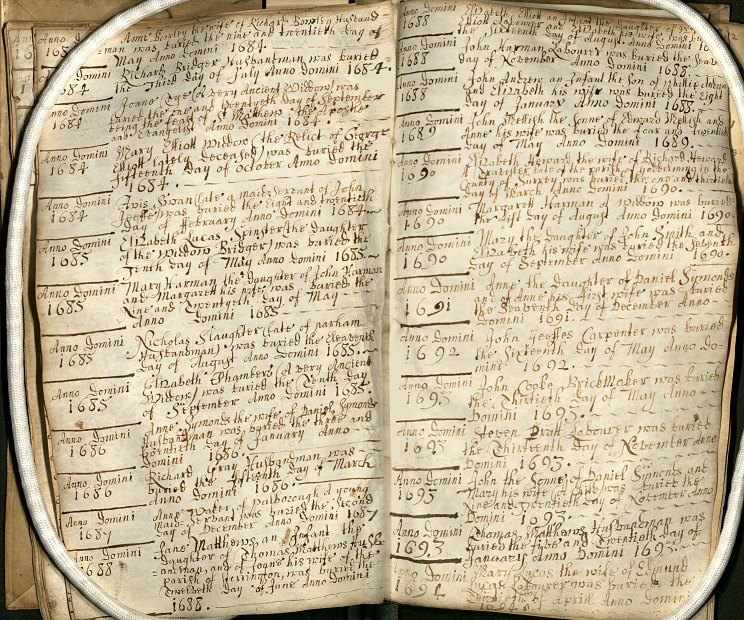 Anno Domini 1684 Anne Bowley the wife of Richard Bowley Husband
man was buried the nine and twentieth day of
May Anno Domini 1684.
Anno Domini 1684 Richard Bridger Husbandman was buried
the Third day of July Anno Domini 1684.
Anno Domini 1684 Joane Tye (A very Ancient Widdow) was
buried the one and twentieth day of September
being the feast of St Matthew the Apostle
and Evangelist Anno Domini 1684
Anno Domini 1684 Mary Elliott Widdow (the Relict of George
Elliott lately deceased) was buried the
day of October Anno Domini
1684.
Anno Domini 1684 Avis Swan (late maid servant of John
Jeoffe) was buried the Eight and twentieth
day of ffebruary Anno Domini 1684
Anno Domini 1685 Elizabeth Lucas Spinster (the daughter
of the Widdow Bridger) was buried the
Tenth day of May Anno Domini 1685
Anno Domini 1685 Mary Harman the daughter of John Harman
and Margaret his wife was buried the
Nine and Twentyeth day of May
Anno Domini 1685
Anno Domini 1685 Nicholas Slaughter (late of parham
Husbandman) was buried the Eleaventh
day of August Anno Domini 1685.
Anno Domini 1685 Elizabeth Chambers (A very Ancient
Widdow) was buried the Tenth day
of September Anno Domini 1685.
Anno Domini 1686 Anne Symonds the wife of Daniel Symonds
Husbandman was buried the three and
twentieth day of January Anno
Domini 1686.
Anno Domini 1686 Richard Gray Husbandman was
buried the fifteenth day of March
Anno Domini 1686
Anno Domini 1687 Anne Water, a young
maid Servant was buried the Second
day of December Anno Domini 1687
Anno Domini 1688 Jane Matthews, an Infant the
daughter of Thomas Matthews Husb
andman, and of Joane his wife of the
parish of was buried the
Twelveth day of June Anno Domini
1688.
Anno Domini 1688 Elizabeth Elliott an Infant the daughter of
Elliott Labourer and Elizabeth his wife was
the Sixteenth day of August Anno Domini
Anno Domini 1688 John Harman Labourer was buried the
day of November Anno Domini 1688.
Anno Domini 1688 John Andrew an Infant the Son of Phillip Andrew
and Elizabeth his wife was buried the Eight
day of January Anno Domini 1688.
Anno Domini 1689 John Mellish the Sonne of Edward Mellish and
Anne his wife was buried the four and twentieth
day of May Anno Domini 1689.
Anno Domini 1690 Elizabeth Howard the wife of Richard Howard
A late of the parish of in the
County of was buried the one and thirtieth
day of March Anno Domini 1690.
Anno Domini 1690 Margarett Harman A widdow was buried
the first day of August Anno Domini 1690.
Anno Domini 1690 Mary the Daughter of John Smith and
Elizabeth his wife was buried the Seventh
day of September Anno Domini 1690.
Anno Domini 1691 Anne the Daughter of Daniel Symonds
and of Anne his first wife was buried
the Seaventh day of December Anno
Domini 1691.
Anno Domini 1692 John Jeoffes Carpenter was buried
the Sixteenth day of May Anno Do-
mini 1692.
Anno Domini 1693 John Cooke BrickMaker was buried
the Thirtieth day of May Anno
Domini 1693.
Anno Domini 1693 Steven Pratt Labourer was buried
the Thirteenth day of November Anno
Domini 1693.
Anno Domini 1693 John the Sonne of Daniel Simonds and
Mary his wife was buried the
Nine and twentieth day of November Anno
Domini 1693.
Anno Domini 1693 Thomas Matthews Husbandman was
buried the five and Twentieth day of
January Anno Domini 1693.
Anno Domini 1694 Mary Lucas the wife of Edmund
Lucas Labourer was buried the
of Aprill Anno Domini
1694